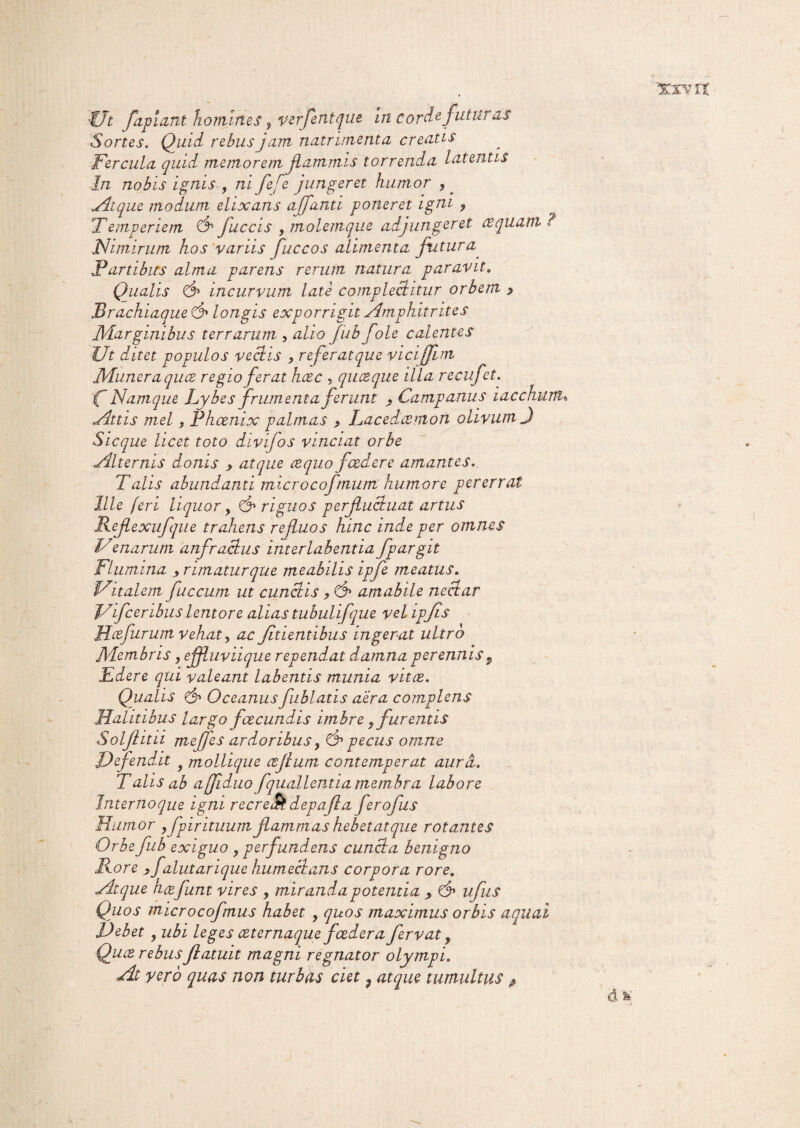 XXVII
Ut ſapiant homines, verſentque in corde futuras
Sortes. Quid rebus jam natrimenta creatis
Fercula quid memorem flammis torrenda latentis
In nobis ignis, ni ſeſe jungeret humor,
Atque modum elixans aſſanti poneret igni,
Temperiem & ſuccis, molemque adjungeret æquam?
Nimirum hos variis ſuccos alimenta futura
Partibus alma parens rerum natura paravit.
Qualis & incurvum latè complectitur orbem,
Brachiaque & longis exporrigit Amphitrites
Marginibus terrarum, alio ſub ſole calentes
Ut ditet populos vectis, referatque viciſſim
Munera quæ regio ferat hæc, quæque illa recuſet.
(Namque Lybes frumenta ferunt, Campanus iacchum,
Attis mel, Phœnix palmas, Lacedæmon olivum)
Sicque licet toto diviſos vinciat orbe
Alternis donis, atque æquo fœdere amantes.
Talis abundanti microcoſmum humore pererrat
Ille feri liquor, & riguos perfluctuat artus
Reflexuſque trahens refluos hinc inde per omnes
Venarum anfractus interlabentia ſpargit
Flumina, rimaturque meabilis ipſe meatus.
Vitalem ſuccum ut cunctis, & amabile nectar
Viſceribus lentore alias tubuliſque vel ipſis
Hæſurum vehat, ac ſitientibus ingerat ultrò
Membris, effluviique rependat damna perennis,
Edere qui valeant labentis munia vitæ.
Qualis & Oceanus ſublatis aëra complens
Halitibus largo fœcundis imbre, furentis
Solſtitii meſſes ardoribus, & pecus omne
Defendit, mollique æſtum contemperat aurâ.
Talis ab aſſiduo ſquallentia membra labore
Internoque igni recreat depaſta ſeroſus
Humor, ſpirituum flammas hebetatque rotantes
Orbe ſub exiguo, perfundens cuncta benigno
Rore, ſalutarique humectans corpora rore.
Atque hæ ſunt vires, miranda potentia, & uſus
Quos microcoſmus habet, quos maximus orbis aquai
Debet, ubi leges æternaque fœdera ſervat,
Quæ rebus ſtatuit magni regnator olympi.
At verò quas non turbas ciet, atque tumultus,
d